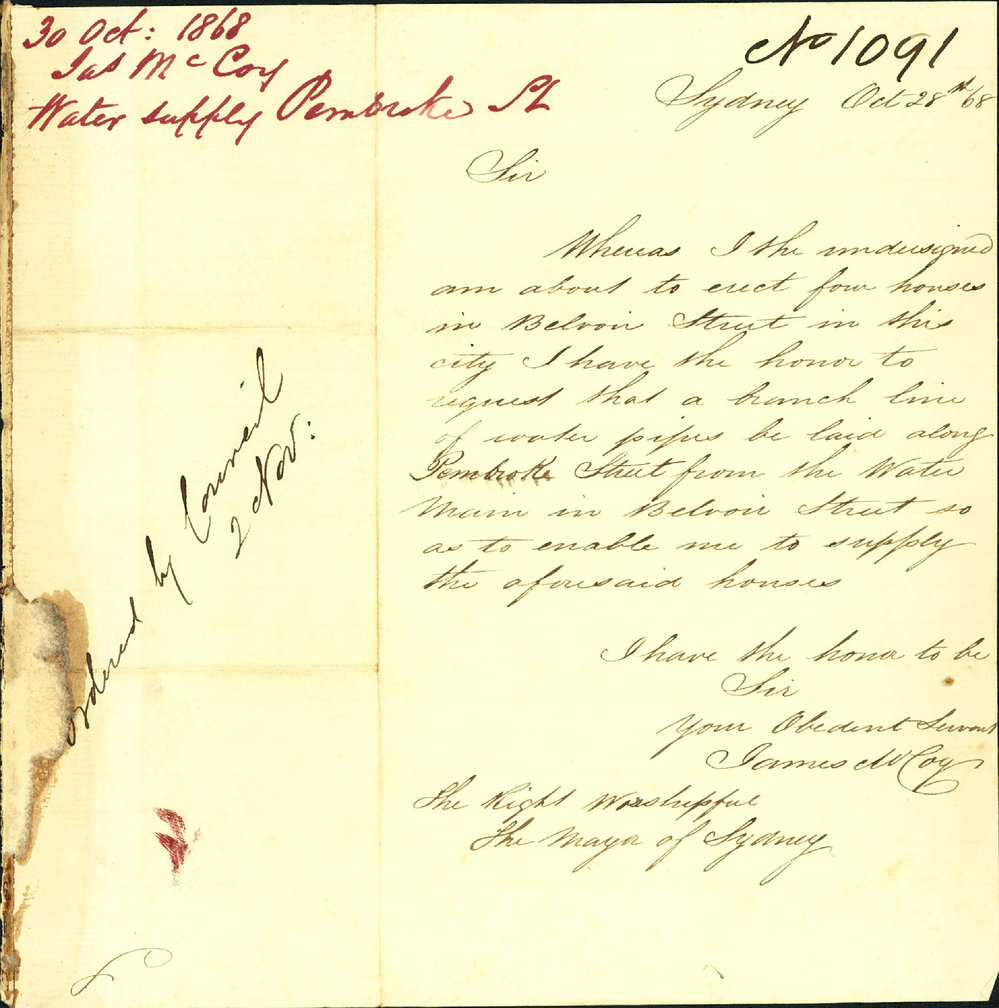 30 Oct: 1868
Jas McCoy
Water supply Pembroke St
No 1091
Sydney Oct 28th/68
Sir
Whereas I the undersigned
am about to erect four houses
in Belvoir Street in this
city I have the honor to
request that a branch line
of water pipes be laid along
Pembroke Street from the Water
Main in Belvoir Street so
as to enable me to supply
the aforesaid houses
I have the honor to be
Sir
Your Obedent Servant
James McCoy
The Right Worshipful
The Mayor of Sydney
ordered by Council
2 Nov: